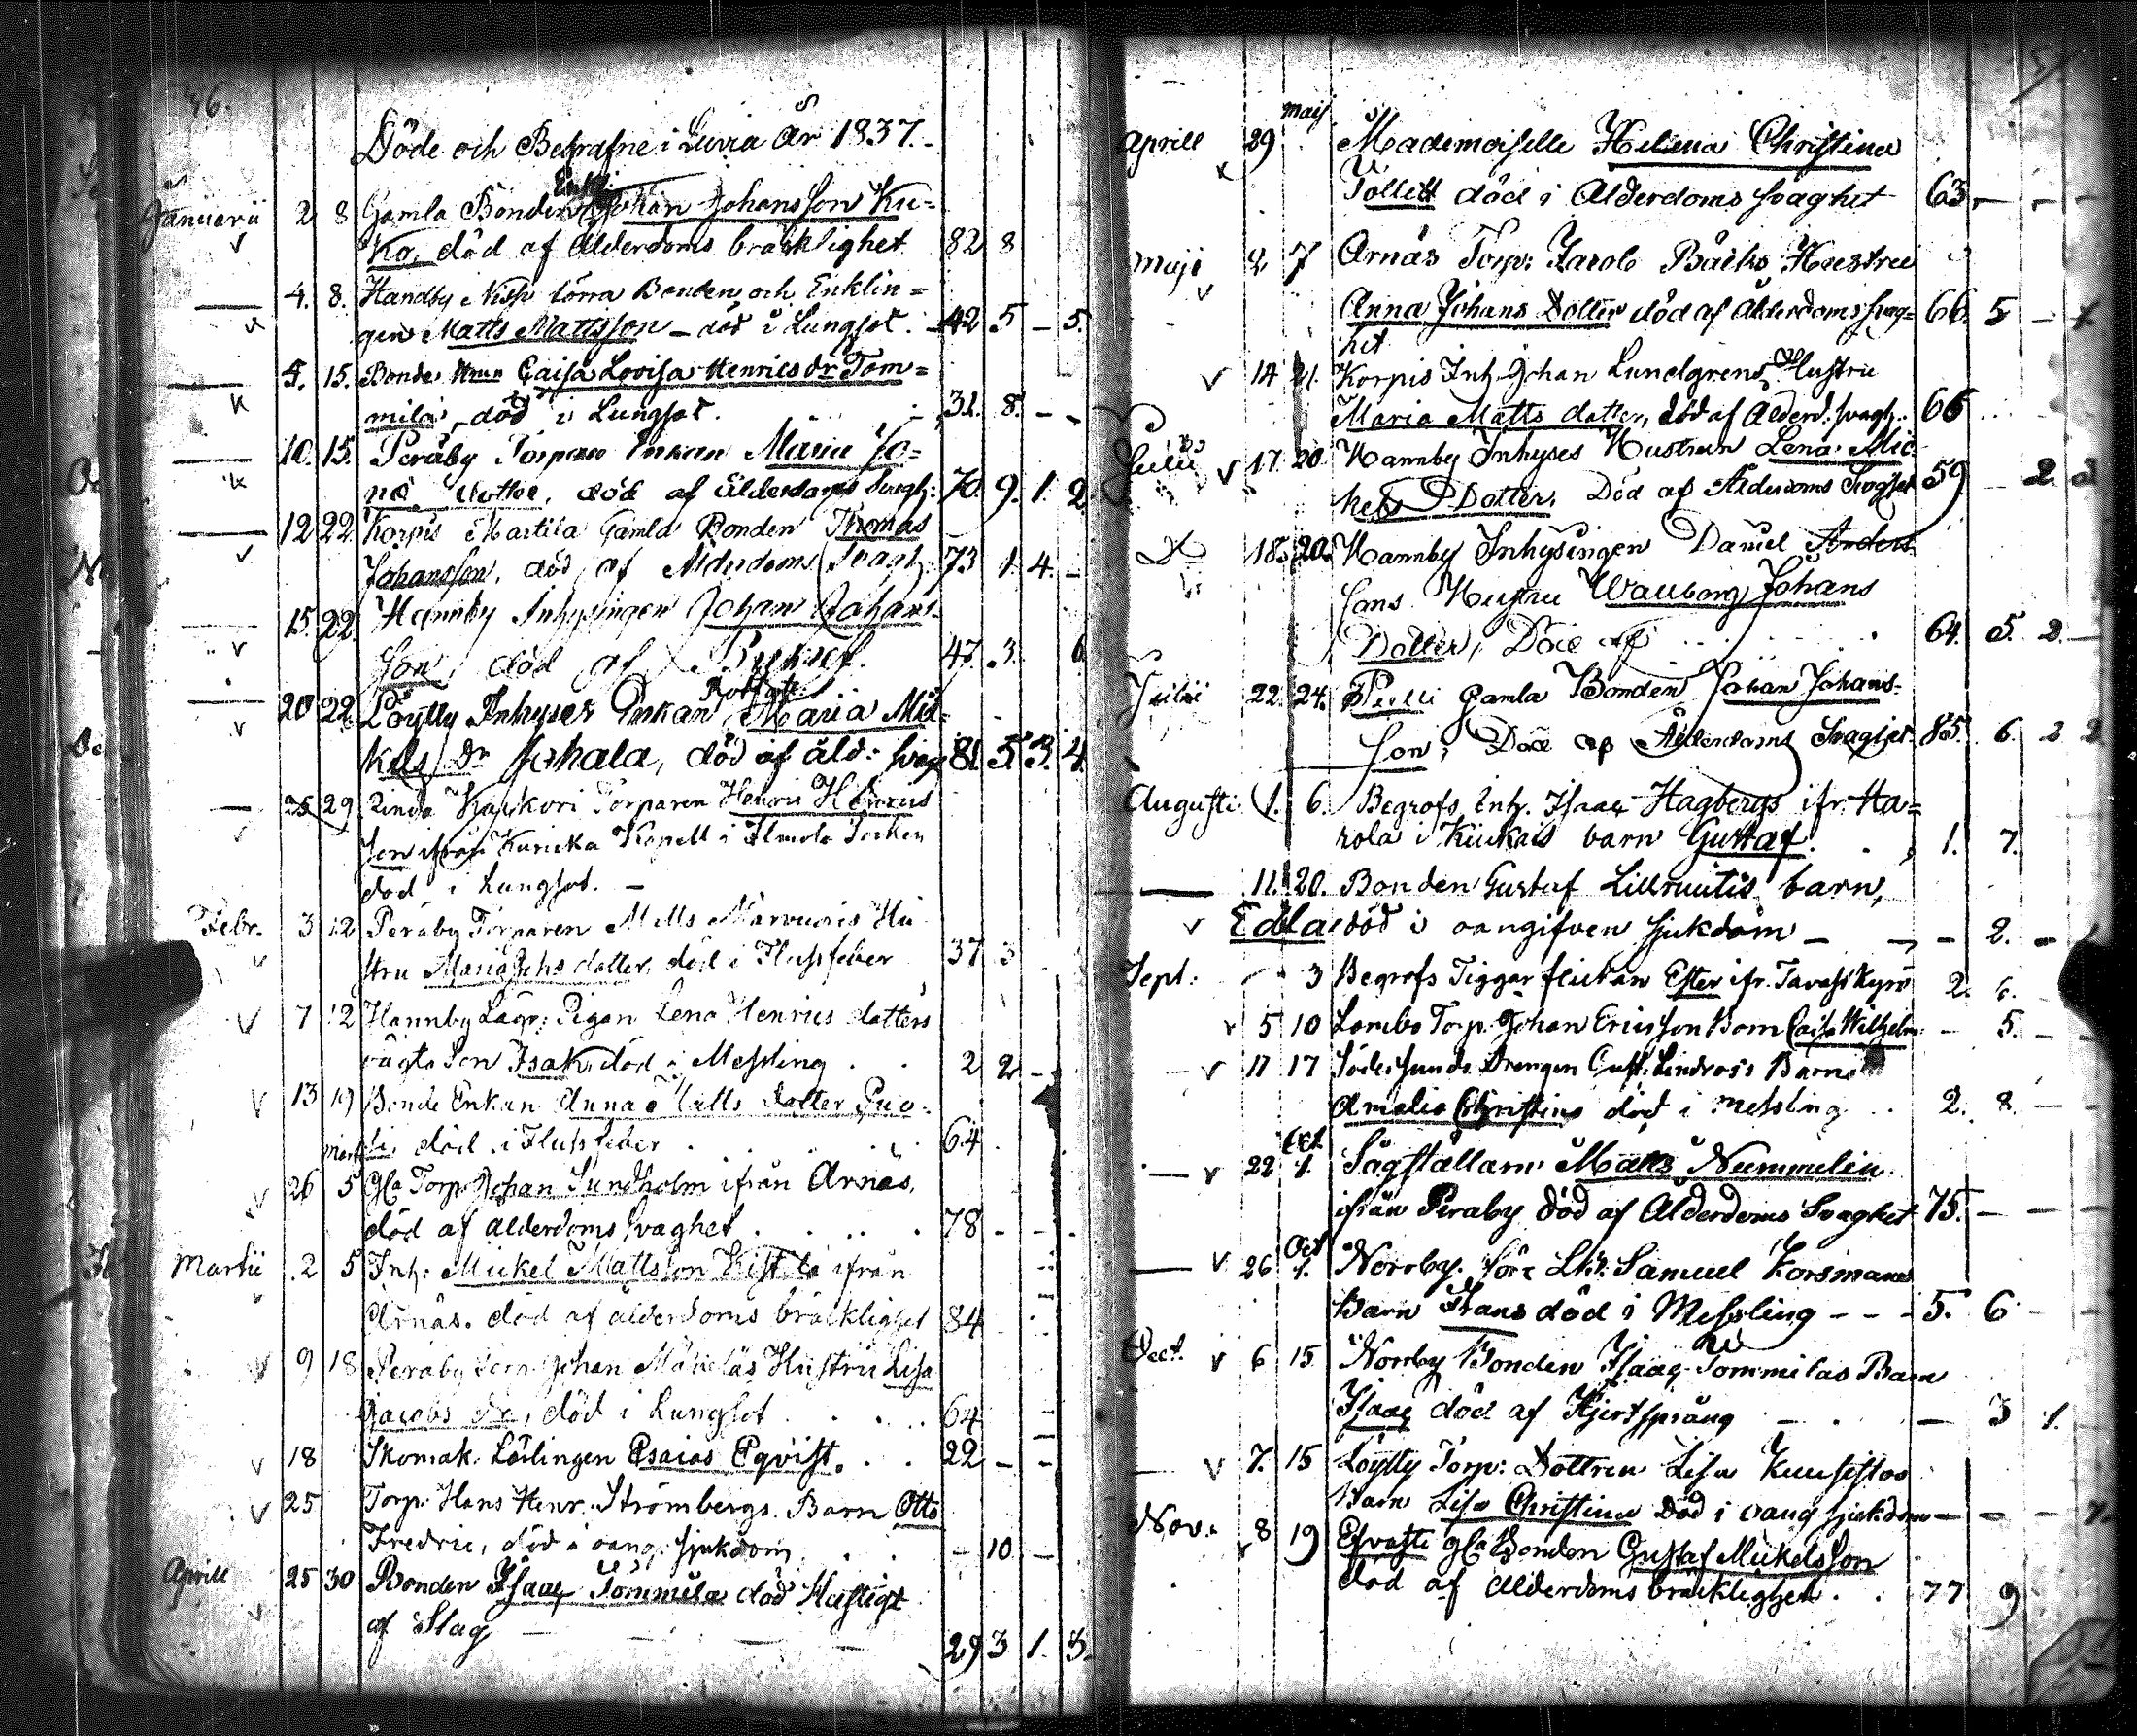 46.
Döde och Begrafne i Luvia År 1837.
Januarii 2 8 Gamla Bonden Enkl: Johan Johansson Ku=
ko, död af Ålderdoms bräcklighet 82 8
4. 8. Handby Norra Bonden och Enklin=
gen Matts Mattsson – död i Lungsot. 42 5 – 5.
5. 15. Bonde Caisa Lovisa Henricsdr Tom=
mila, död i Lungsot. 31. 8. – -
10. 15. Peräby Torpare Enkan Maria Jo=
dotter, död af Ålderdoms svagh: 70. 9. 1. 2
12 22 Korpis Martila Gamla Bonden Thomas
Johansson, död af Ålderdoms Svagh: 73 1. 4. -
15. 22. Hannby Inhysingen Johan Johans-
son, död af 47. 3. 6
20 22. Löytty Inhyses Enkan Rotfatt. Maria Mic=
kels Dr Johala, död af åld: svag 81. 5. 3. 4.
25 29 Torparen Henric Henrics
Son ifrån Kuricka Kapell i Ilmola Socken
död i Lungsot. –
Febr. 3 12 Peräby Torparen Matts Hu
stru Maria dotter, död i Flussfeber 37 3
7 12 Hannby Pigan Lena Henrics dotters
oägta Son Isak, död i Messling . . 2 2 –
13 19 Bonde Enkan Anna Matts dotter
Mart död i Flussfeber 64
26 5 Gla Torp: Johan Sundholm ifrån Arnäs,
död af alderdoms svaghet . . . . 78 - - .
Martii 2 5 Inh: Mickel Mattsson ifrån
Arnäs. död af alderdoms bräcklighet 84
9 18 Peräby Torp: Johan Mäkeläs Hustru Lisa
Jacobs dr, död i Lungsot . . . . 64
18 Skomak. Lärlingen Esaias Eqvist. . . 22 – -
25 Torp. Hans Henr. Strömbergs. Barn Otto
Fredric, död i oang: sjukdom . . – 10 –
Aprill 25 30 Bonden Isaac Tommila död Hastigt
af Slag 29 3 1. 3.
Aprill 29 maij Mademoiselle Helena Christina
Tollett död i Alderdoms svaghet 63. – - - -
Maji 2, 7 Arnäs Torp: Jacob Bäcks Hustru
Anna Johans Dotter död af Ålderdoms svag= 66. 5 –
het
14 21. Korpis Inh. Johan Lundgrens Hustru
Maria Matts dotter, död af Alderd: svagh. 66
Julii 17. 20 Hannby Inhyses Hustrun Lena Mic
kels Dotter, Död af Ålderdoms Svaghet 59 2. 2
18. 20. Hannby Inhysingen Daniel Anders
sons Hustru Wauborg Johans
Dotter, Död af . . . . . 64. 5. 2. –
Julii 22. 24. Gamla Bonden Johan Johans-
son, Död af Ålderdoms Svaghet 85. 6. 2 2
Augusti 1. 6. Begrofs Inh. Isaac Hagbergs ifr. Ha=
rola i Kiukais barn Gustaf. . , 1. 7.
11. 20. Bonden Gustaf Lillruutis barn,
Edla död i oangifven sjukdom – – – 2. –
Sept: 3 Begrofs Tiggar flickan Ester ifr. Tavast Kyrö 2. 6.
5 10 Torp. Johan Ericsson Barn Caisa Wilhelm: – 5. –
11 17 Drengen Gust. Lindros's Barn
Amalia Christina död i Messling . . 2. 8. – –
22 Oct 1. Sågställaren Matts Nummelin
ifrån Peraby död af Alderdoms Svaghet 75. – – –
26 Oct 1. Norrby. Samuel Korsmans
Barn Hans död i Messling – – – 5. 6
Oct. 6 15 Norrby Bonden Isaac Tommilas Barn
Isaac död af Hjertsprång – . – 3 1.
7. 15 Löytty Torp: Dottren Lisa Kuusistos
Barn Lisa Christina Död i oang sjukdom – – – 7.
Nov. 8 19 gla Bonden Gustaf Mickelsson
död af Alderdoms bräcklighet. . 77 9